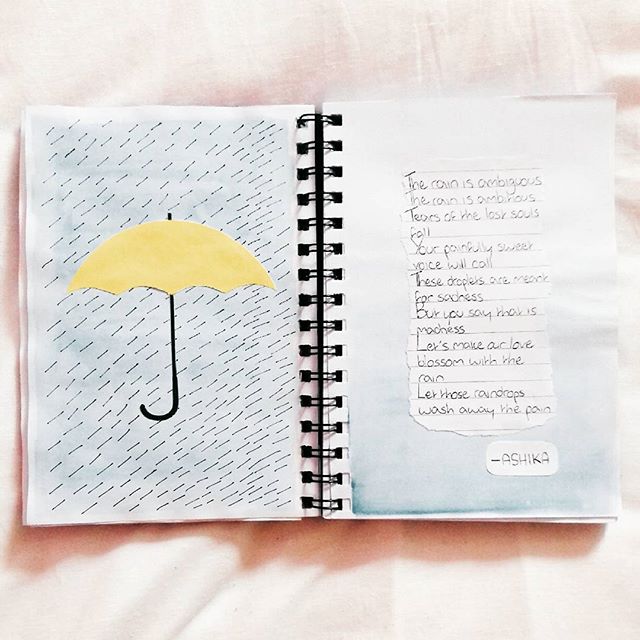 The rain is ambiguous
The rain is ambitious
Tears of the lost souls
fall
Your painfully sweet
voice will call
These droplets are meant
for sadness
But you say that is
madness
Let's make our love
blossom with the
rain
Let those raindrops
wash away the pain
-ASHIKA